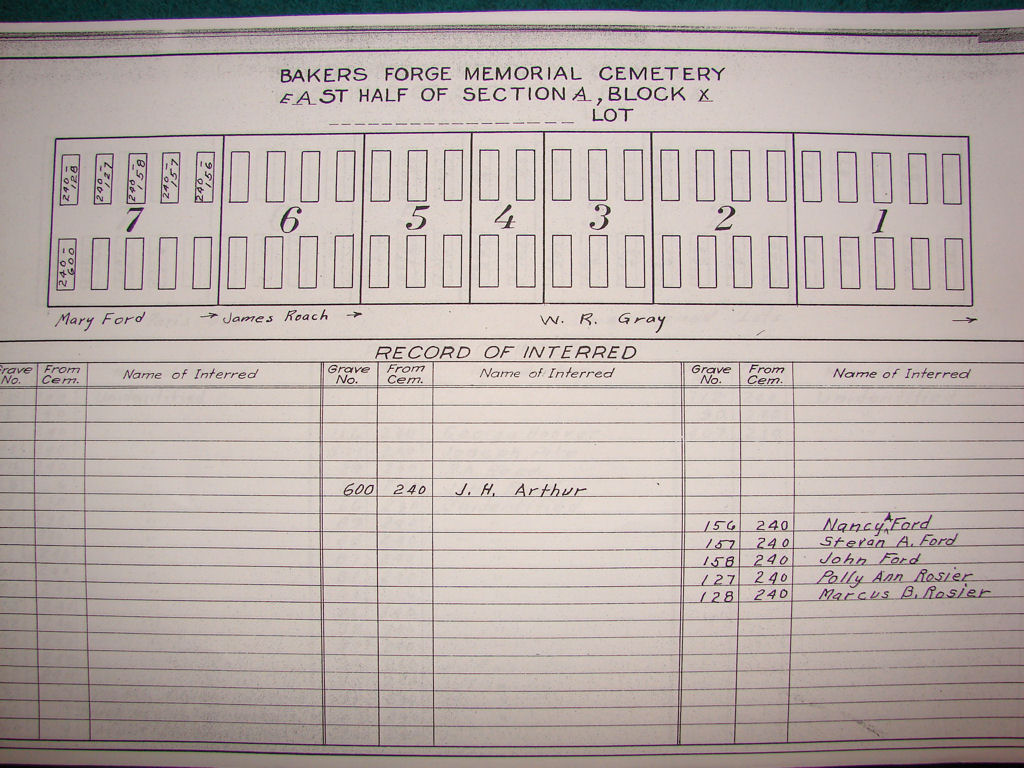 BAKERS FORGE MEMORIAL CEMETERY
EAST HALF OF SECTION A, BLOCK X
LOT
240-128 240-127 240-158 240-157 240-156
7 6 5 4 3 2 1
240-600
Mary Ford → James Roach → W. R. Gray →
RECORD OF INTERRED
Grave No. From Cem. Name of Interred Grave No. From Cem. Name of Interred Grave No. From Cem. Name of Interred
600 240 J. H. Arthur
156 240 Nancy A Ford
157 240 Stevan A. Ford
158 240 John Ford
127 240 Polly Ann Rosier
128 240 Marcus B. Rosier